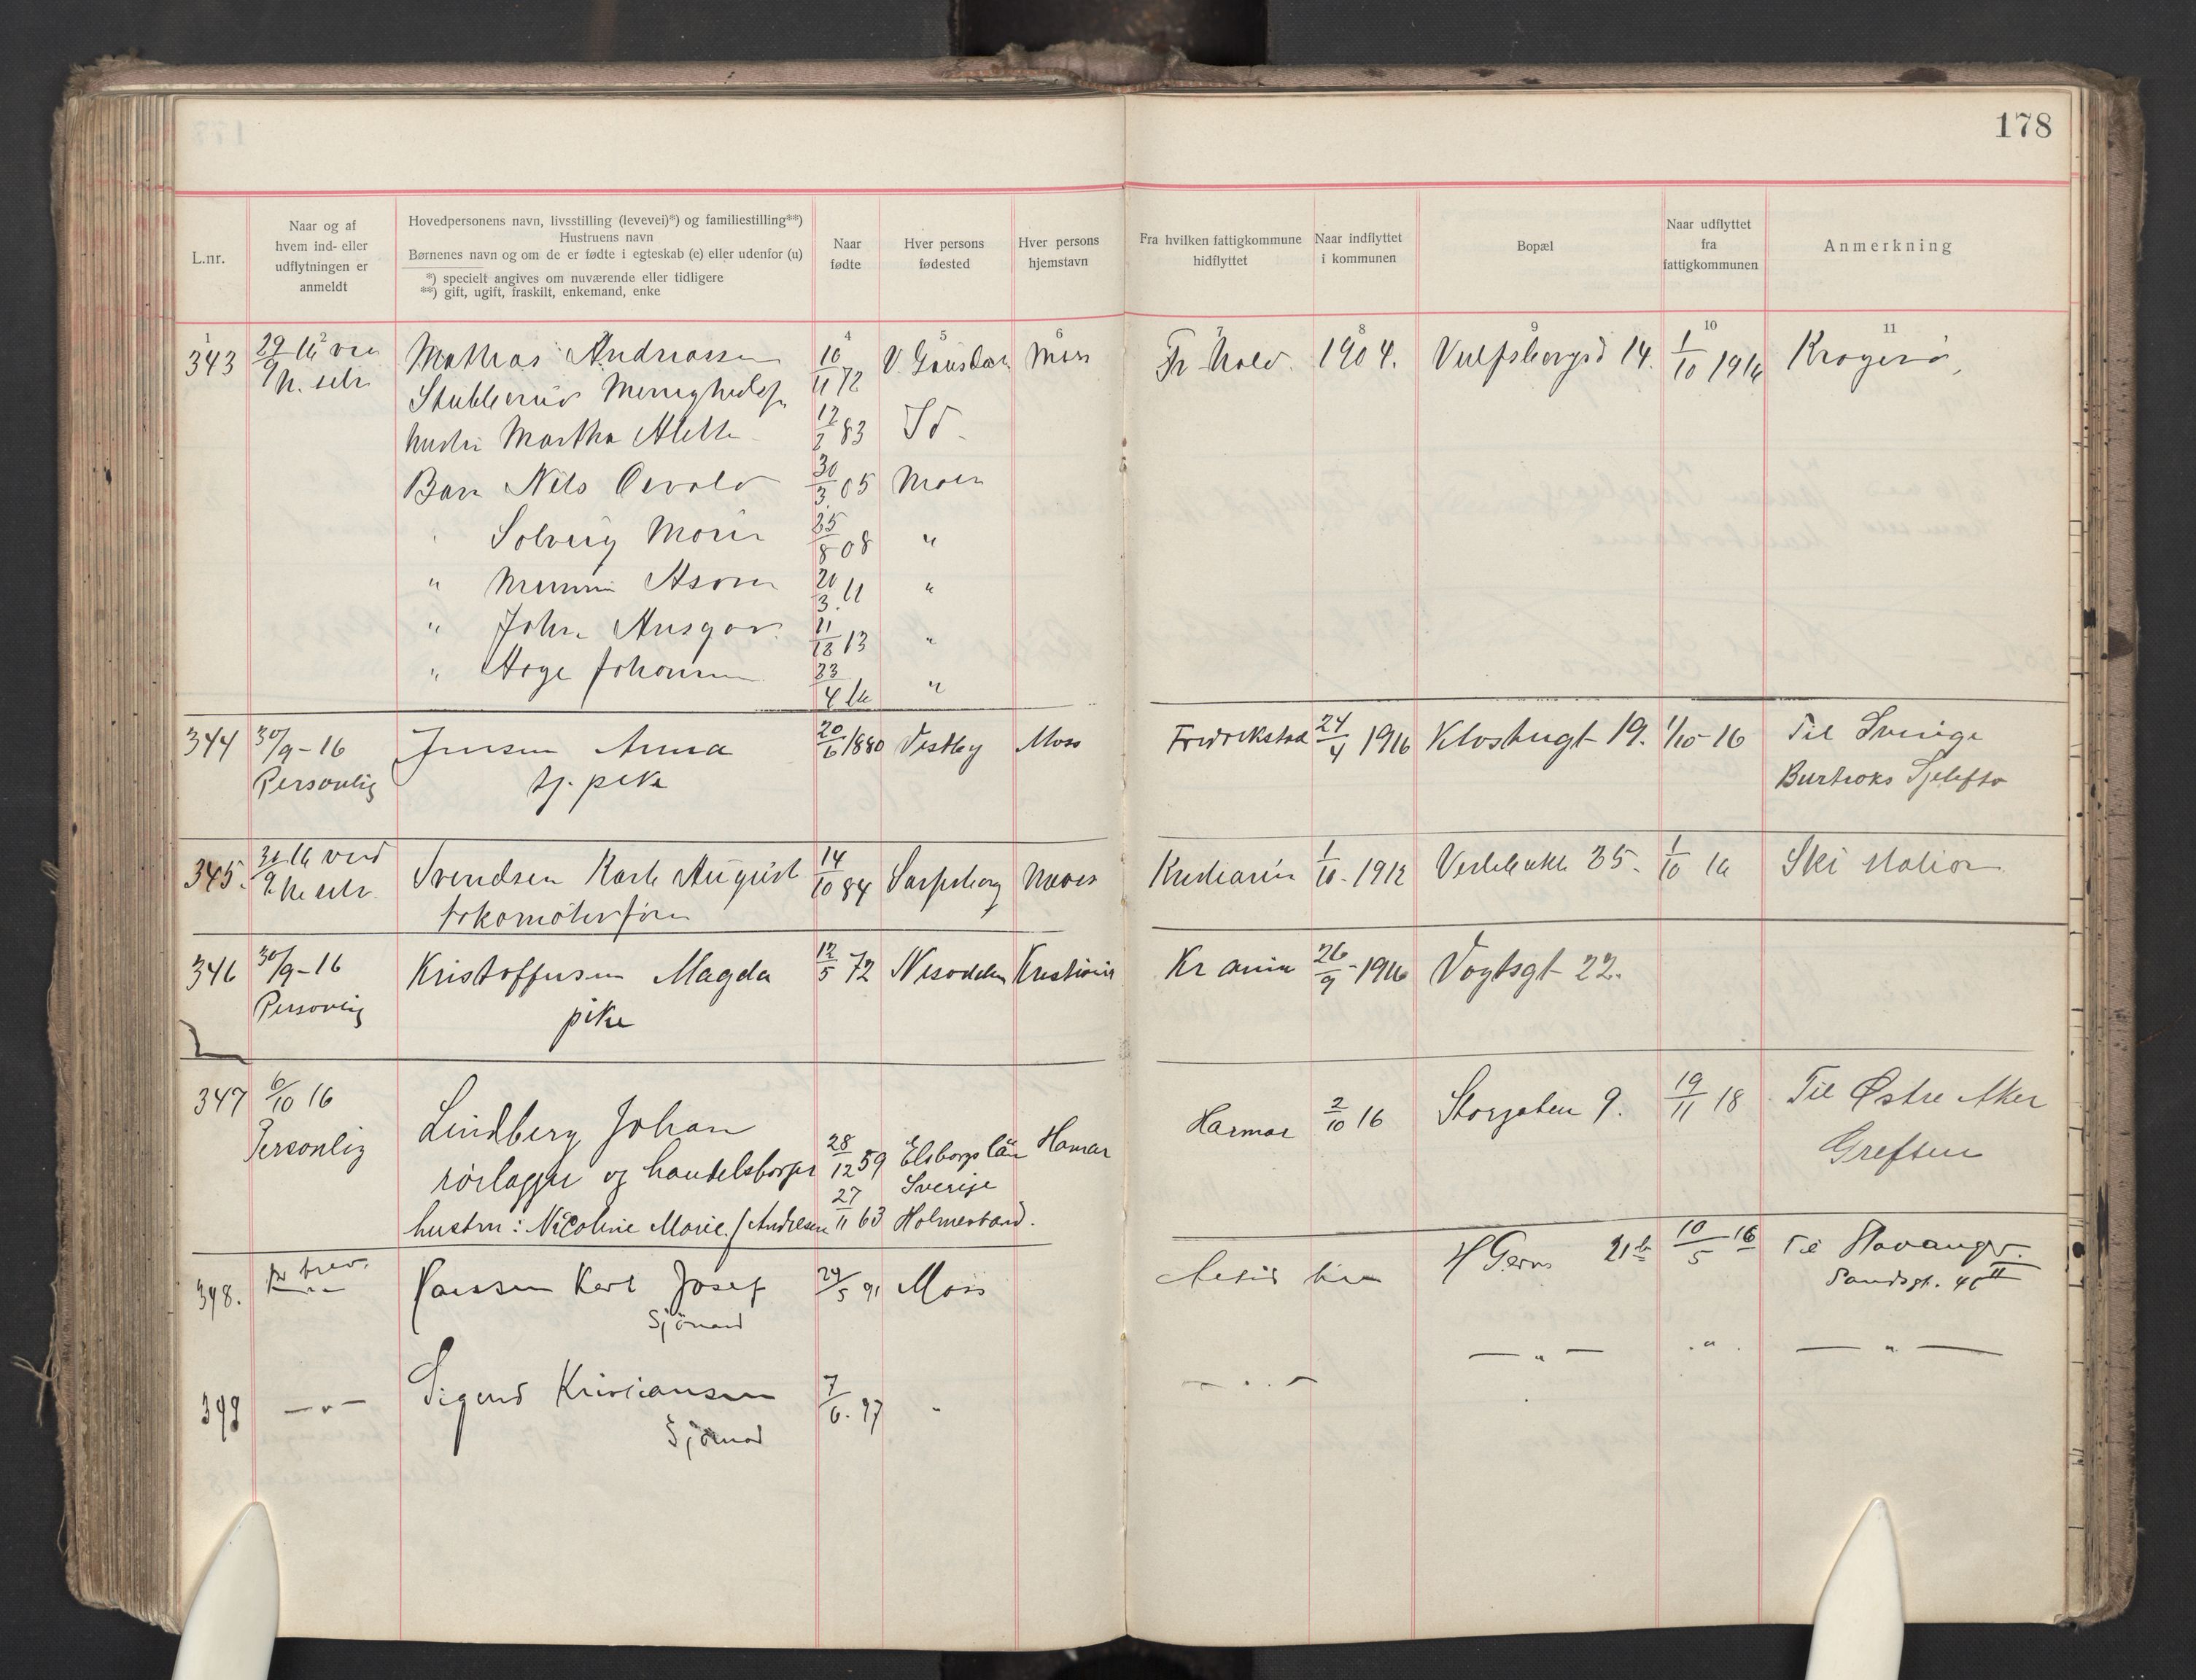 178
L.nr.
Naar og af
hvem ind- eller
udflytningen er
anmeldt
Hovedpersonens navn, livsstilling (levevei)*) og familiestilling**)
Hustruens navn
Børnenes navn og om de er fødte i egteskab (e) eller udenfor (u)
*) specielt angives om nuværende eller tidligere
**) gift, ugift, fraskilt, enkemand, enke
Naar
fødte
Hver persons
fødested
Hver persons
hjemstavn
Fra hvilken fattigkommune
hidflyttet
Naar indflyttet
i kommunen
Bopæl
Naar udflyttet
fra
fattigkommunen
Anmerkning
1 2 4 5 6 7 8 9 10 11
343 29/9 16 Mathias Andreassen 16/11 72 Moss 1904. 14. 1/10 1916 Kragerø
Stubberud
hustru Martha 83
Barn Nils 30/3 05 Moss
Solveig 25/8 08 "
" 20/3 11 "
" John Ansgar 11/12 13 "
" Aage Johannes 23/4 16 "
344 30/9-16 Jensen Anna 20/6 1880 Vestby Moss Fredrikstad 24/4 1916 19. 1/10-16 Til Sverige
Personlig tj. pike
345. 30/9 16 ved Svendsen Karl August 14/10 84 Sarpsborg Kristiania 1/10-1912 35. 1/10 16 Ski station
lokomotivfører
346 30/9-16 Kristoffersen Magda 12/5 72 Nesodden Kristiania Kr ania 26/9-1916 Vogtsgt 22.
Personlig pike
347 6/10 16 Lindberg Johan 28/12 59 Elsborgs län Hamar Hamar 2/10 16 Storgaten 9. 19/11 18 Til Østre Aker
Personlig rørlægger og handelsborger Sverige Grefsen
hustru: Nicoline Marie f. Andresen 27/11 63 Holmestrand.
348. pr brev. Karl Josef 29/5 91 Moss 21b 10/5 16 Til Stavanger.
Sjömand Sandsgt. 40 II
349 — " — Sigurd Kristiansen 7/6. 97 " — " — — " — " — " —
Sjömand